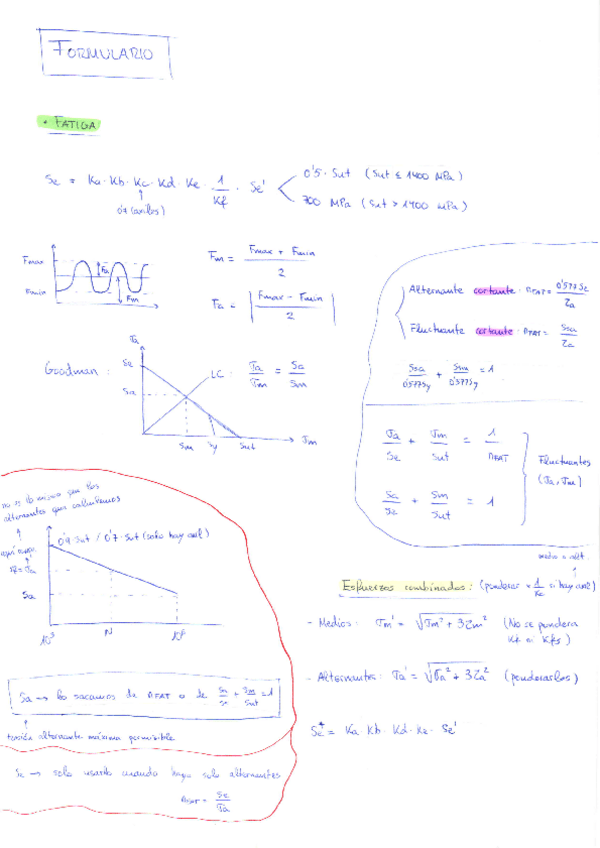 FORMULARIO
• FATIGA
Se = Ka · Kb · Kc · Kd · Ke · 1/Kf · Se'
0'5 · Sut (Sut ≤ 1400 MPa)
700 MPa (Sut > 1400 MPa)
Fmax
Fmin
Fa
Fm
Fm = (Fmax + Fmin)/2
Fa = |(Fmax - Fmin)/2|
Alternante cortante: nFAT = 0'577Se/τa
Fluctuante cortante: nFAT = Ssa/τa
Ssa/0'577Sy + Ssm/0'577Sy = 1
Goodman:
σa
Se
Sa
LC: σa/σm = Sa/Sm
Sm Sy Sut σm
σa/Se + σm/Sut = 1/nFAT
Sa/Se + Sm/Sut = 1
Fluctuantes
(σa, σm)
no es lo mismo que las
alternantes que calculamos
0'9·Sut / 0'7·Sut (solo hay axil)
Sa
10³ N 10⁶
Sa → lo sacamos de nFAT o de Sa/Se + Sm/Sut = 1
tensión alternante máxima permisible
Se → solo usarlo cuando haya solo alternantes
nFAT = Se/σa
medio o alt.
Esfuerzos combinados: (ponderar × 1/Kc si hay axil)
- Medios: σm' = √(σm² + 3τm²) (No se pondera
Kf ni Kfs)
- Alternantes: σa' = √(σa² + 3τa²) (ponderarlos)
Se* = Ka Kb · Kd · Ke · Se'